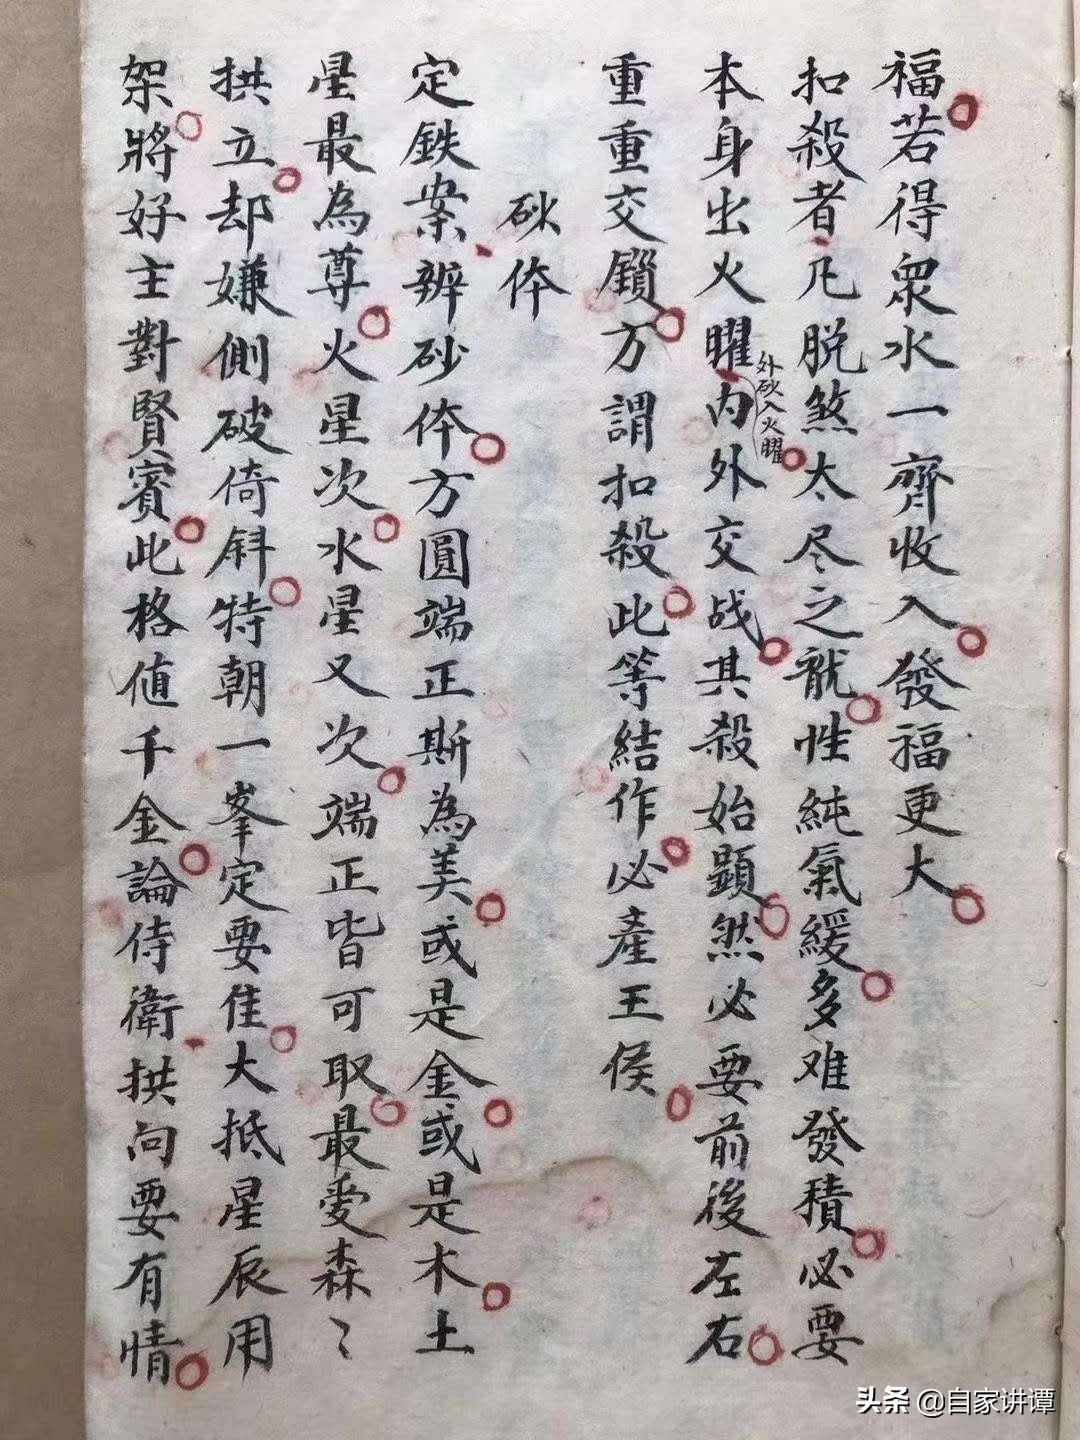 福若得眾水一齊收入發福更大
扣殺者凡脱煞太尽之龍性純氣緩多难發積必要
本身出火曜内外交战其殺始顯然必要前後左右
外砂入火曜
重重交鎖方謂扣殺此等結作必產王侯
砂体
定鉄案辨砂体方圓端正斯為美或是金或是木土
星最為尊火星次水星又次端正皆可取最愛森〻
拱立却嫌側破倚斜特朝一峯定要佳大抵星辰用
架將好主對賢賓此格值千金論侍衛拱向要有情
头条 @自家讲谭